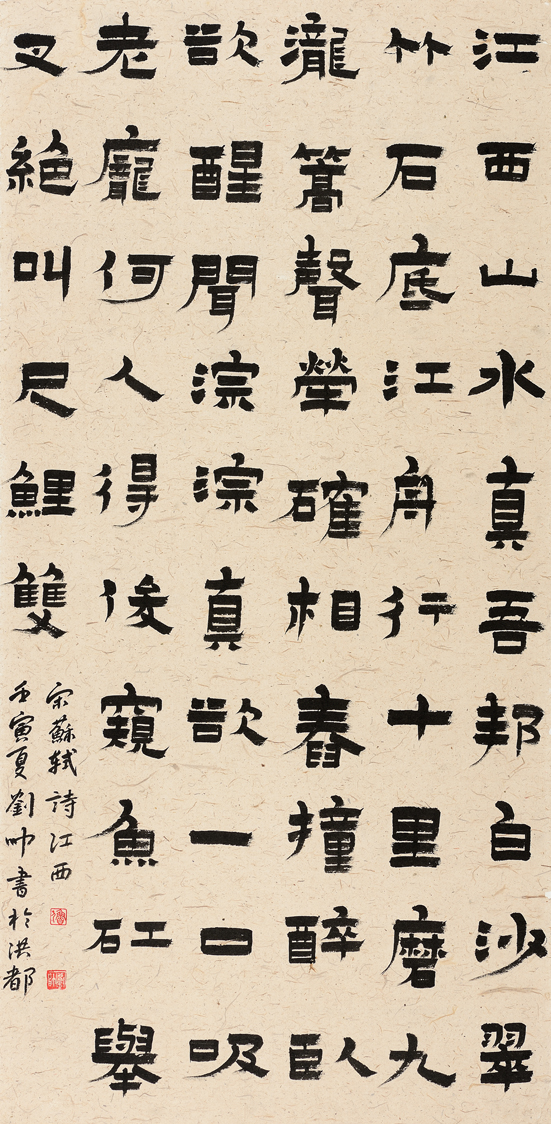 江西山水真吾邦白沙翠
竹石底江舟行十里磨九
瀧篙聲犖確相舂撞醉臥
欲醒聞淙淙真欲一口吸
老龐何人得俊窺魚矼舉
叉絕叫尺鯉雙
宋蘇軾詩江西
壬寅夏劉帥書於洪都